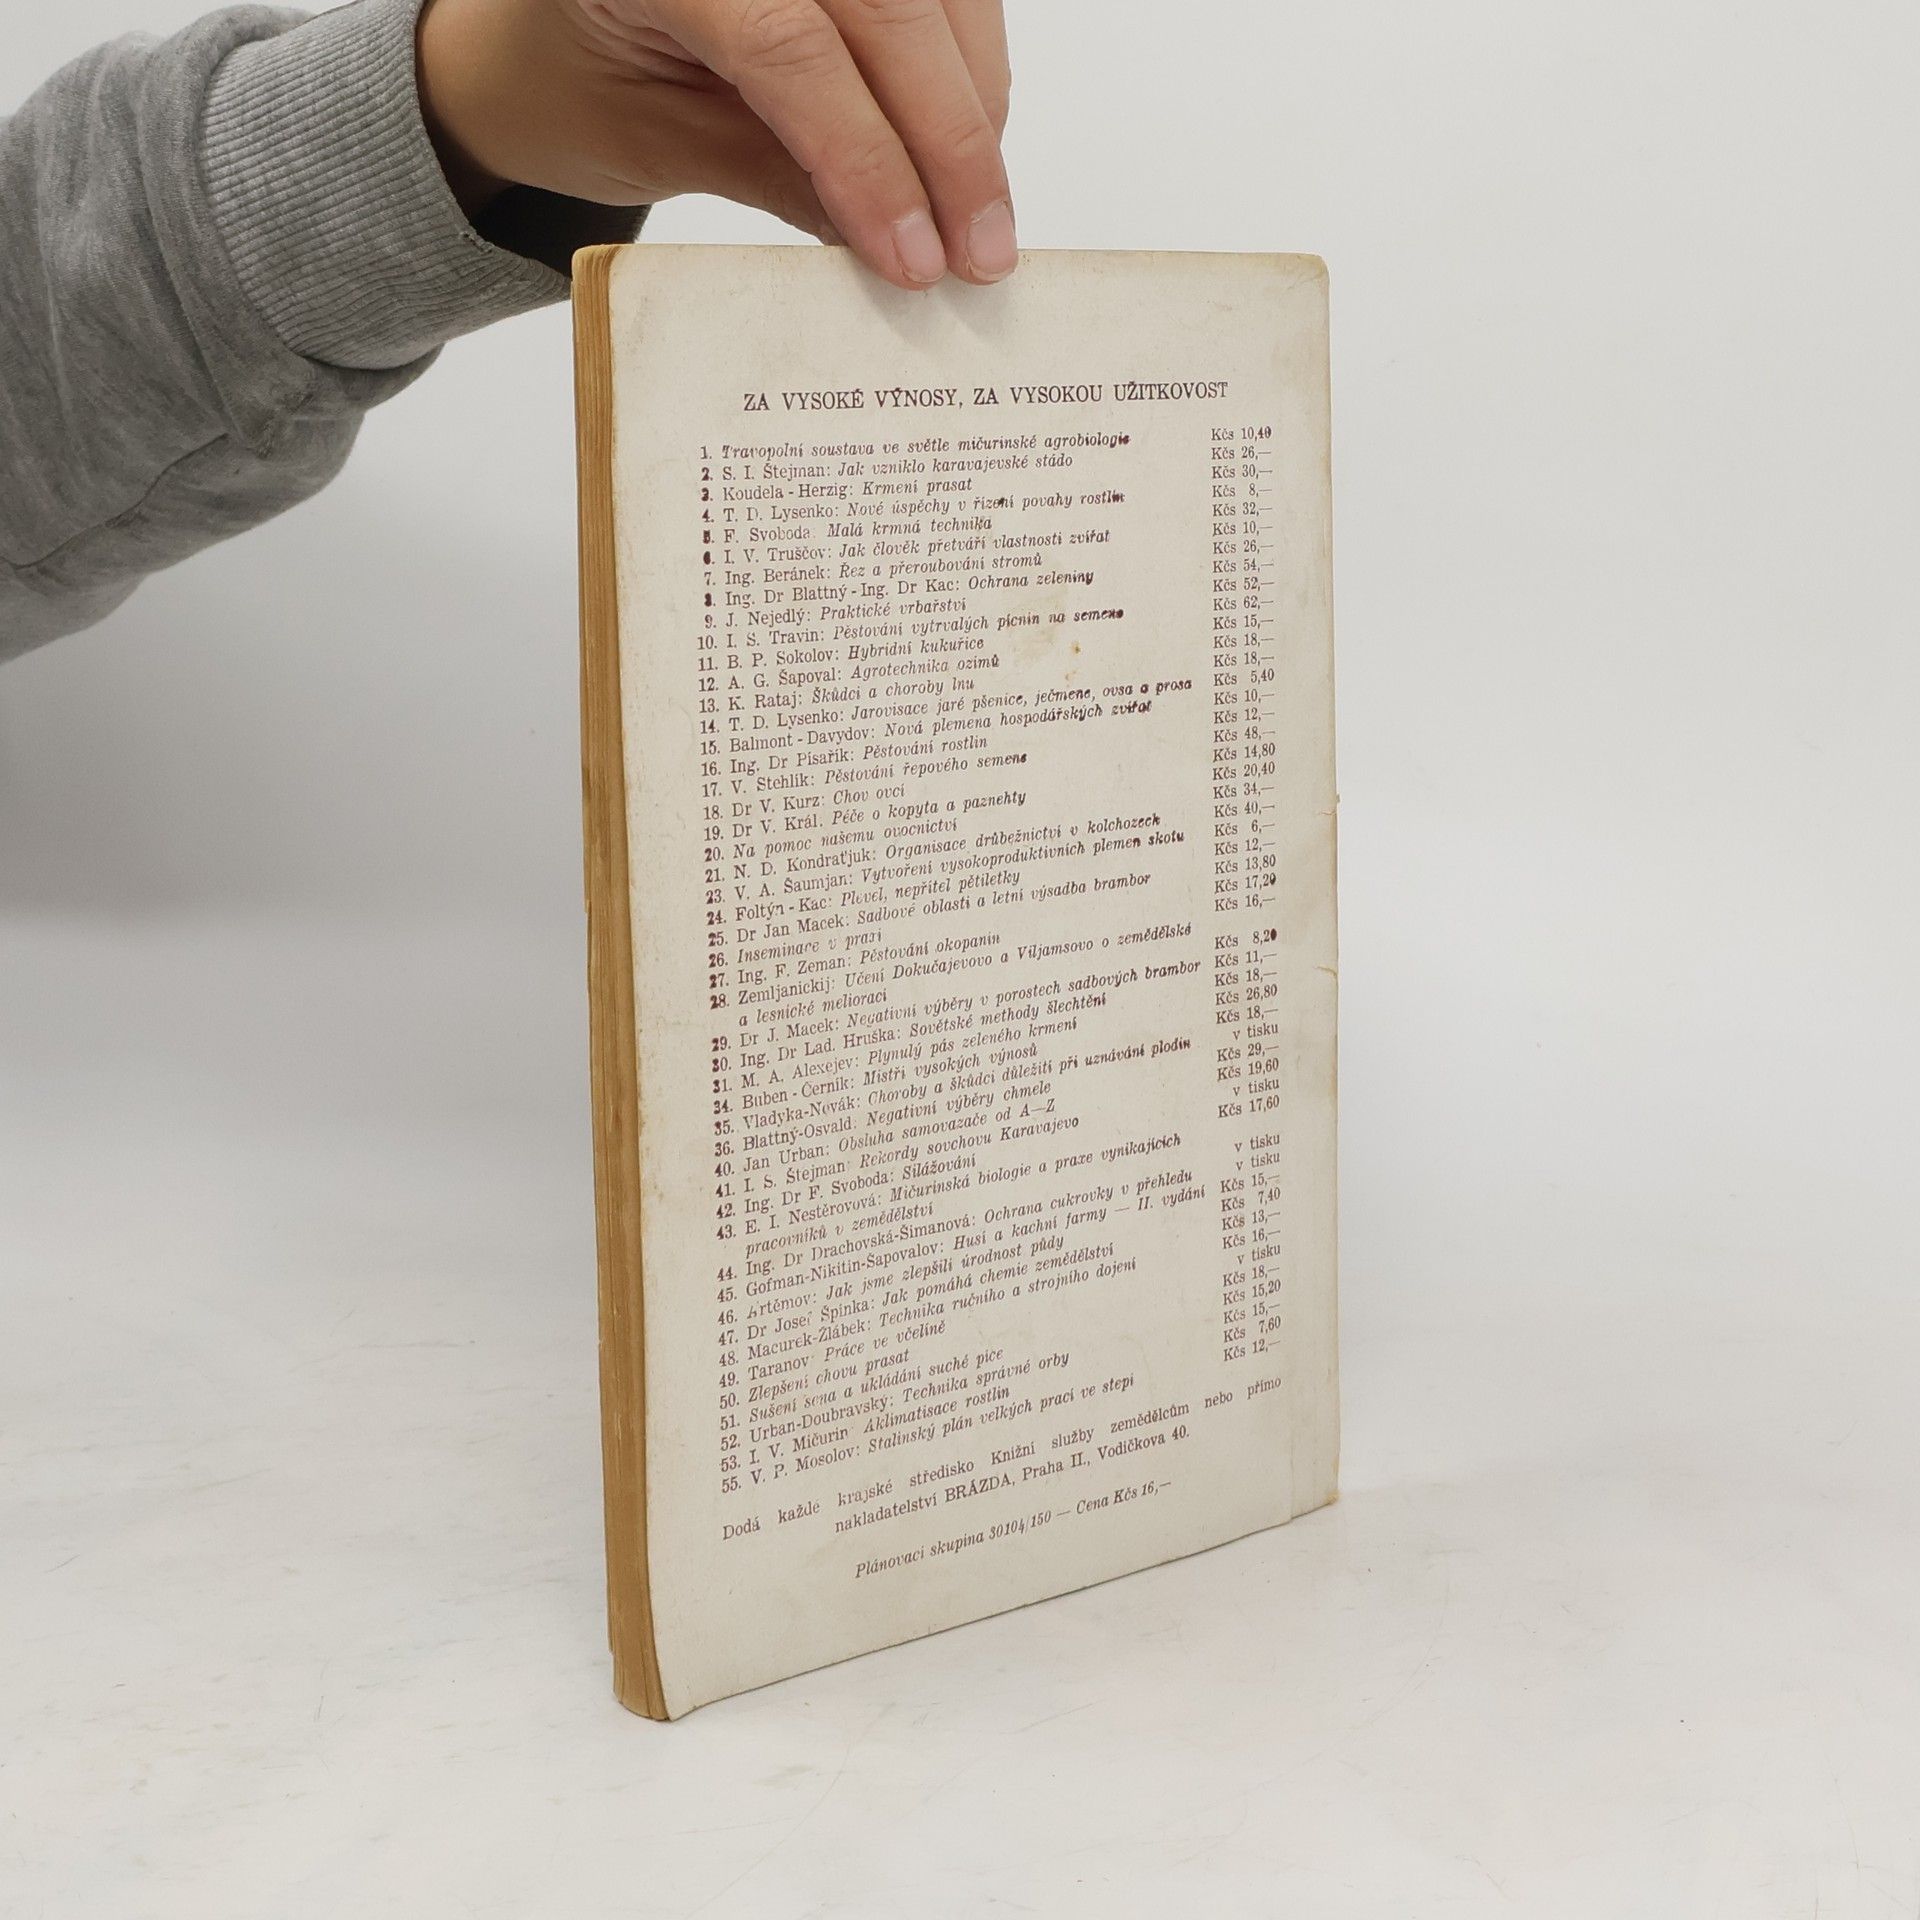 ZA VYSOKÉ VÝNOSY, ZA VYSOKOU UŽITKOVOST
1. Travopolní soustava ve světle mičurinské agrobiologie Kčs 10,40
2. S. I. Štejman: Jak vzniklo karavajevské stádo Kčs 26,—
3. Koudela - Herzig: Krmení prasat Kčs 30,—
4. T. D. Lysenko: Nové úspěchy v řízení povahy rostlin Kčs 8,—
5. F. Svoboda: Malá krmná technika Kčs 32,—
6. I. V. Truščov: Jak člověk přetváří vlastnosti zvířat Kčs 10,—
7. Ing. Beránek: Řez a přeroubování stromů Kčs 26,—
8. Ing. Dr Blattný - Ing. Dr Kac: Ochrana zeleniny Kčs 54,—
9. J. Nejedlý: Praktické vrbařství Kčs 52,—
10. I. S. Travin: Pěstování vytrvalých pícnin na semeno Kčs 62,—
11. B. P. Sokolov: Hybridní kukuřice Kčs 15,—
12. A. G. Šapoval: Agrotechnika ozimů Kčs 18,—
13. K. Rataj: Škůdci a choroby lnu Kčs 18,—
14. T. D. Lysenko: Jarovisace jaré pšenice, ječmene, ovsa a prosa Kčs 5,40
15. Balmont - Davydov: Nová plemena hospodářských zvířat Kčs 10,—
16. Ing. Dr Písařík: Pěstování rostlin Kčs 12,—
17. V. Stehlík: Pěstování řepového semene Kčs 48,—
18. Dr V. Kurz: Chov ovcí Kčs 14,80
19. Dr V. Král: Péče o kopyta a paznehty Kčs 20,40
20. Na pomoc našemu ovocnictví Kčs 34,—
21. N. D. Kondraťjuk: Organisace drůbežnictví v kolchozech Kčs 40,—
23. V. A. Šaumjan: Vytvoření vysokoproduktivních plemen skotu Kčs 6,—
24. Foltýn - Kac: Plevel, nepřítel pětiletky Kčs 12,—
25. Dr Jan Macek: Sadbové oblasti a letní výsadba brambor Kčs 13,80
26. Inseminace v praxi Kčs 17,20
27. Ing. F. Zeman: Pěstování okopanin Kčs 16,—
28. Zemljanickij: Učení Dokučajevovo a Viljamsovo o zemědělské
a lesnické melioraci Kčs 8,20
29. Dr J. Macek: Negativní výběry v porostech sadbových brambor Kčs 11,—
30. Ing. Dr Lad. Hruška: Sovětské methody šlechtění Kčs 18,—
31. M. A. Alexejev: Plynulý pás zeleného krmení Kčs 26,80
34. Buben - Černík: Mistři vysokých výnosů Kčs 18,—
35. Vladyka-Novák: Choroby a škůdci důležití při uznávání plodin v tisku
36. Blattný-Osvald: Negativní výběry chmele Kčs 29,—
40. Jan Urban: Obsluha samovazače od A—Z Kčs 19,60
41. I. S. Štejman: Rekordy sovchovu Karavajevo v tisku
42. Ing. Dr F. Svoboda: Silážování Kčs 17,60
43. E. I. Nestěrovová: Mičurinská biologie a praxe vynikajících
pracovníků v zemědělství v tisku
44. Ing. Dr Drachovská-Šimanová: Ochrana cukrovky v přehledu v tisku
45. Gofman-Nikitin-Šapovalov: Husí a kachní farmy — II. vydání Kčs 15,—
46. Artěmov: Jak jsme zlepšili úrodnost půdy Kčs 7,40
47. Dr Josef Špinka: Jak pomáhá chemie zemědělství Kčs 13,—
48. Macurek-Žlábek: Technika ručního a strojního dojení Kčs 16,—
49. Taranov: Práce ve včelíně v tisku
50. Zlepšení chovu prasat Kčs 18,—
51. Sušení sena a ukládání suché píce Kčs 15,20
52. Urban-Doubravský: Technika správné orby Kčs 15,—
53. I. V. Mičurin: Aklimatisace rostlin Kčs 7,60
55. V. P. Mosolov: Stalinský plán velkých prací ve stepi Kčs 12,—
Dodá každé krajské středisko Knižní služby zemědělcům nebo přímo
nakladatelství BRÁZDA, Praha II., Vodičkova 40.
Plánovací skupina 30104/150 — Cena Kčs 16,—